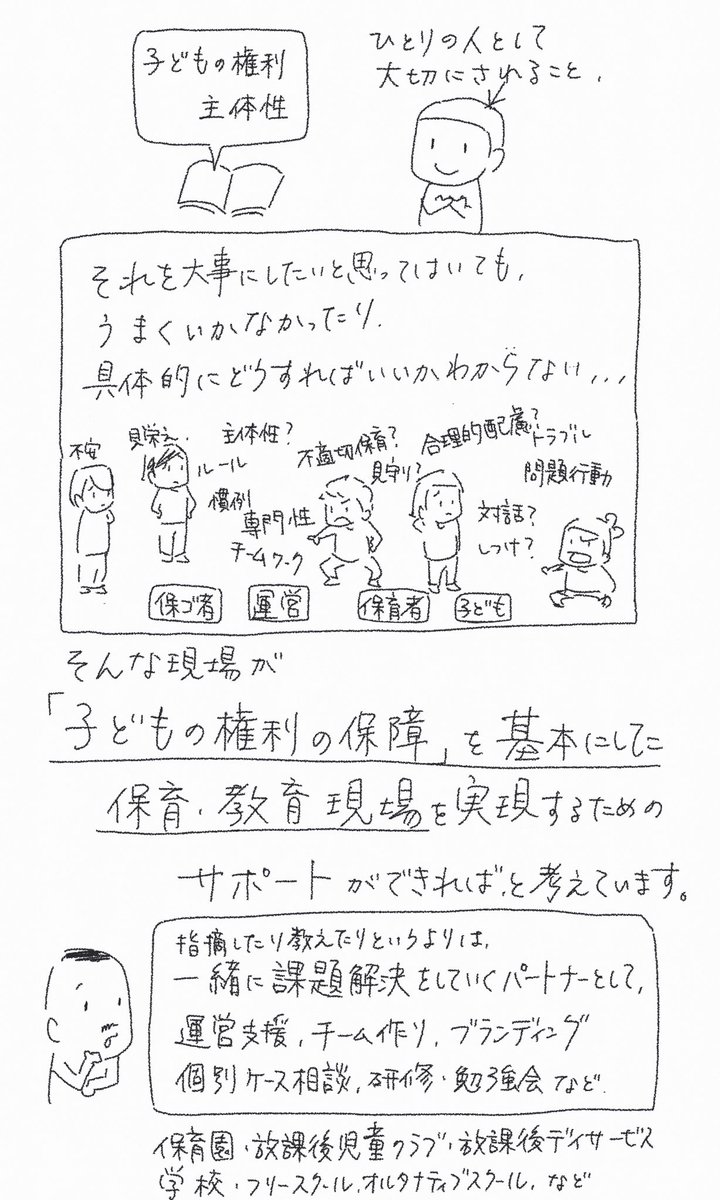 子どもの権利
主体性
ひとりの人として
大切にされること.
それを大事にしたいと思ってはいても,
うまくいかなかったり.
具体的にどうすればいいかわからない...
不安
見栄え.
主体性?
ルール
慣例
専門性
チームワーク
不適切保育?
見守り?
合理的配慮?
トラブル
問題行動
対話?
しつけ?
保ゴ者
運営
保育者
子ども
そんな現場が
「子どもの権利の保障」を基本にした
保育・教育現場を実現するための
サポートができれば、と考えています。
指摘したり教えたりというよりは,
一緒に課題解決をしていくパートナーとして,
運営支援, チーム作り, ブランディング
個別ケース相談, 研修・勉強会など.
保育園・放課後児童クラブ・放課後デイサービス
学校・フリースクール, オルタナティブスクール, など